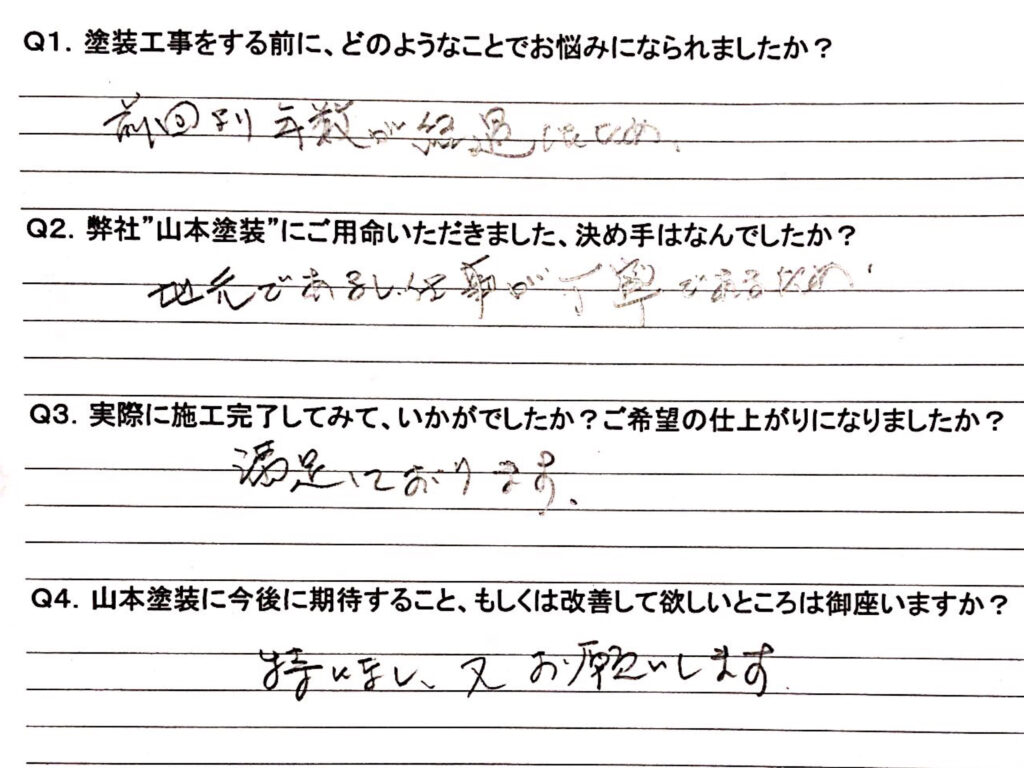 Q1. 塗装工事をする前に、どのようなことでお悩みになられましたか？
前回より年数が経過したため、
Q2. 弊社”山本塗装”にご用命いただきました、決め手はなんでしたか？
地元であるし、仕事が丁寧であるため
Q3. 実際に施工完了してみて、いかがでしたか？ご希望の仕上がりになりましたか？
満足しております、
Q4. 山本塗装に今後に期待すること、もしくは改善して欲しいところは御座いますか？
特になし、又お願いします